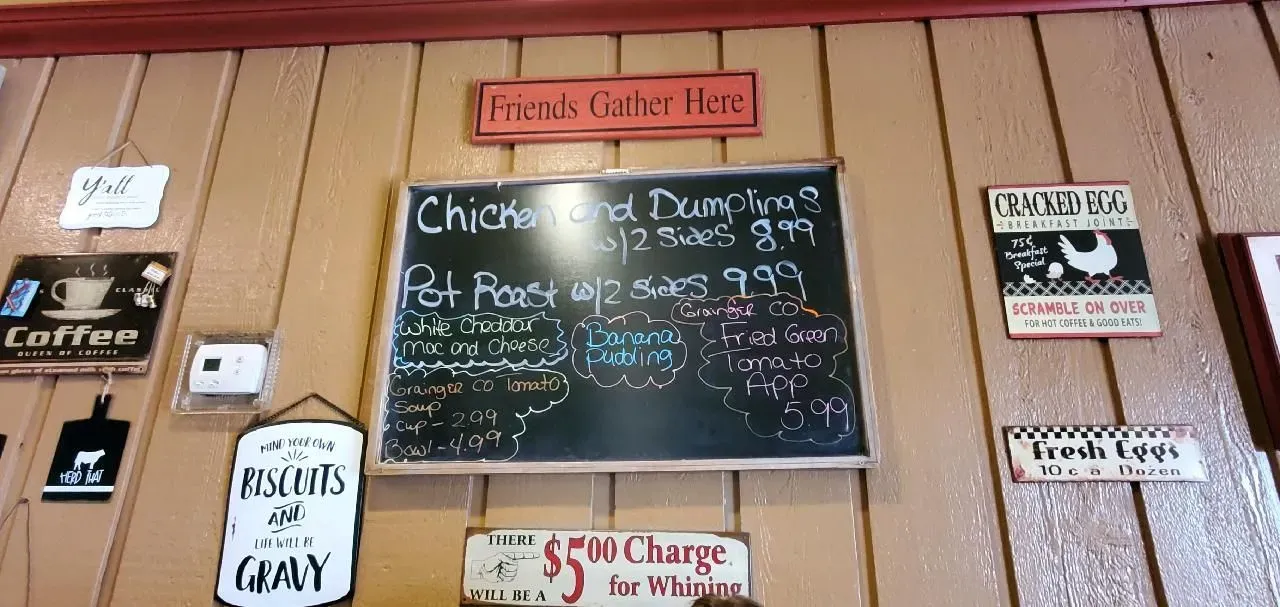 Friends Gather Here
Y'all
Coffee
QUEEN OF COFFEE
HERD THAT
MIND YOUR OWN
BISCUITS
AND
LIFE WILL BE
GRAVY
Chicken and Dumplings
w/2 Sides 8.99
Pot Roast w/2 Sides 9.99
White Cheddar
Mac and Cheese
Banana
Pudding
Grainger CO
Fried Green
Tomato
App
5.99
Grainger CO Tomato
Soup
Cup - 2.99
Bowl - 4.99
THERE
WILL BE A
$5.00 Charge
for Whining
CRACKED EGG
BREAKFAST JOINT
75¢
Breakfast
Special
SCRAMBLE ON OVER
FOR HOT COFFEE & GOOD EATS!
Fresh Eggs
10¢ a Dozen